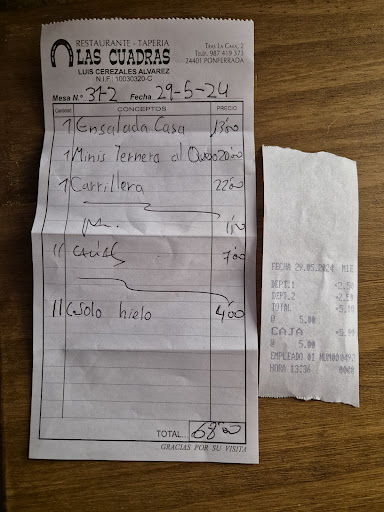 RESTAURANTE - TAPERIA
LAS CUADRAS
LUIS CEREZALES ALVAREZ
N.I.F.: 10030320-C
Tras La Cava, 2
Tel. 987 419 373
24401 PONFERRADA
Mesa N.º 31-2 Fecha 29-5-24
Cantidad CONCEPTOS PRECIO
1 Ensalada Casa 13'00
1 Minis Ternera al Queso 20'00
1 Carrillera 22'00
11 7'00
11 C. Solo hielo 4'00
TOTAL 68'00
GRACIAS POR SU VISITA
FECHA 29.05.2024 MIE
DEPT.1 *2.50
DEPT.2 *2.50
TOTAL
@ 5.00
CAJA
@ 5.00
EMPLEADO 01
HORA 13:36